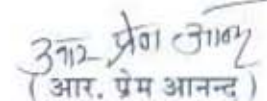 आर. प्रेम आनन्द
( आर. प्रेम आनन्द )